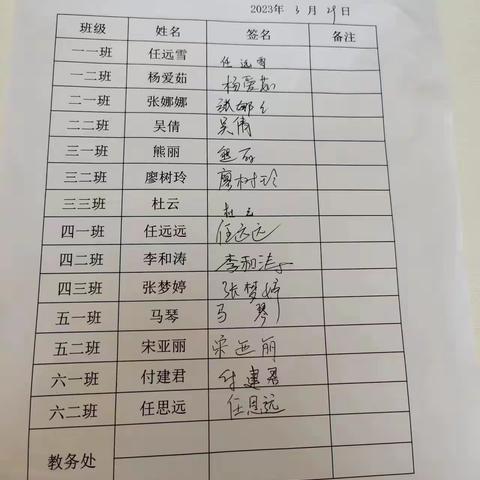 2023年 3 月 29 日
班级 姓名 签名 备注
一一班 任远雪 任远雪
一二班 杨爱茹 杨爱茹
二一班 张娜娜 张娜娜
二二班 吴倩 吴倩
三一班 熊丽 熊丽
三二班 廖树玲 廖树玲
三三班 杜云 杜云
四一班 任远远 任远远
四二班 李和涛 李和涛
四三班 张梦婷 张梦婷
五一班 马琴 马琴
五二班 宋亚丽 宋亚丽
六一班 付建君 付建君
六二班 任思远 任思远
教务处